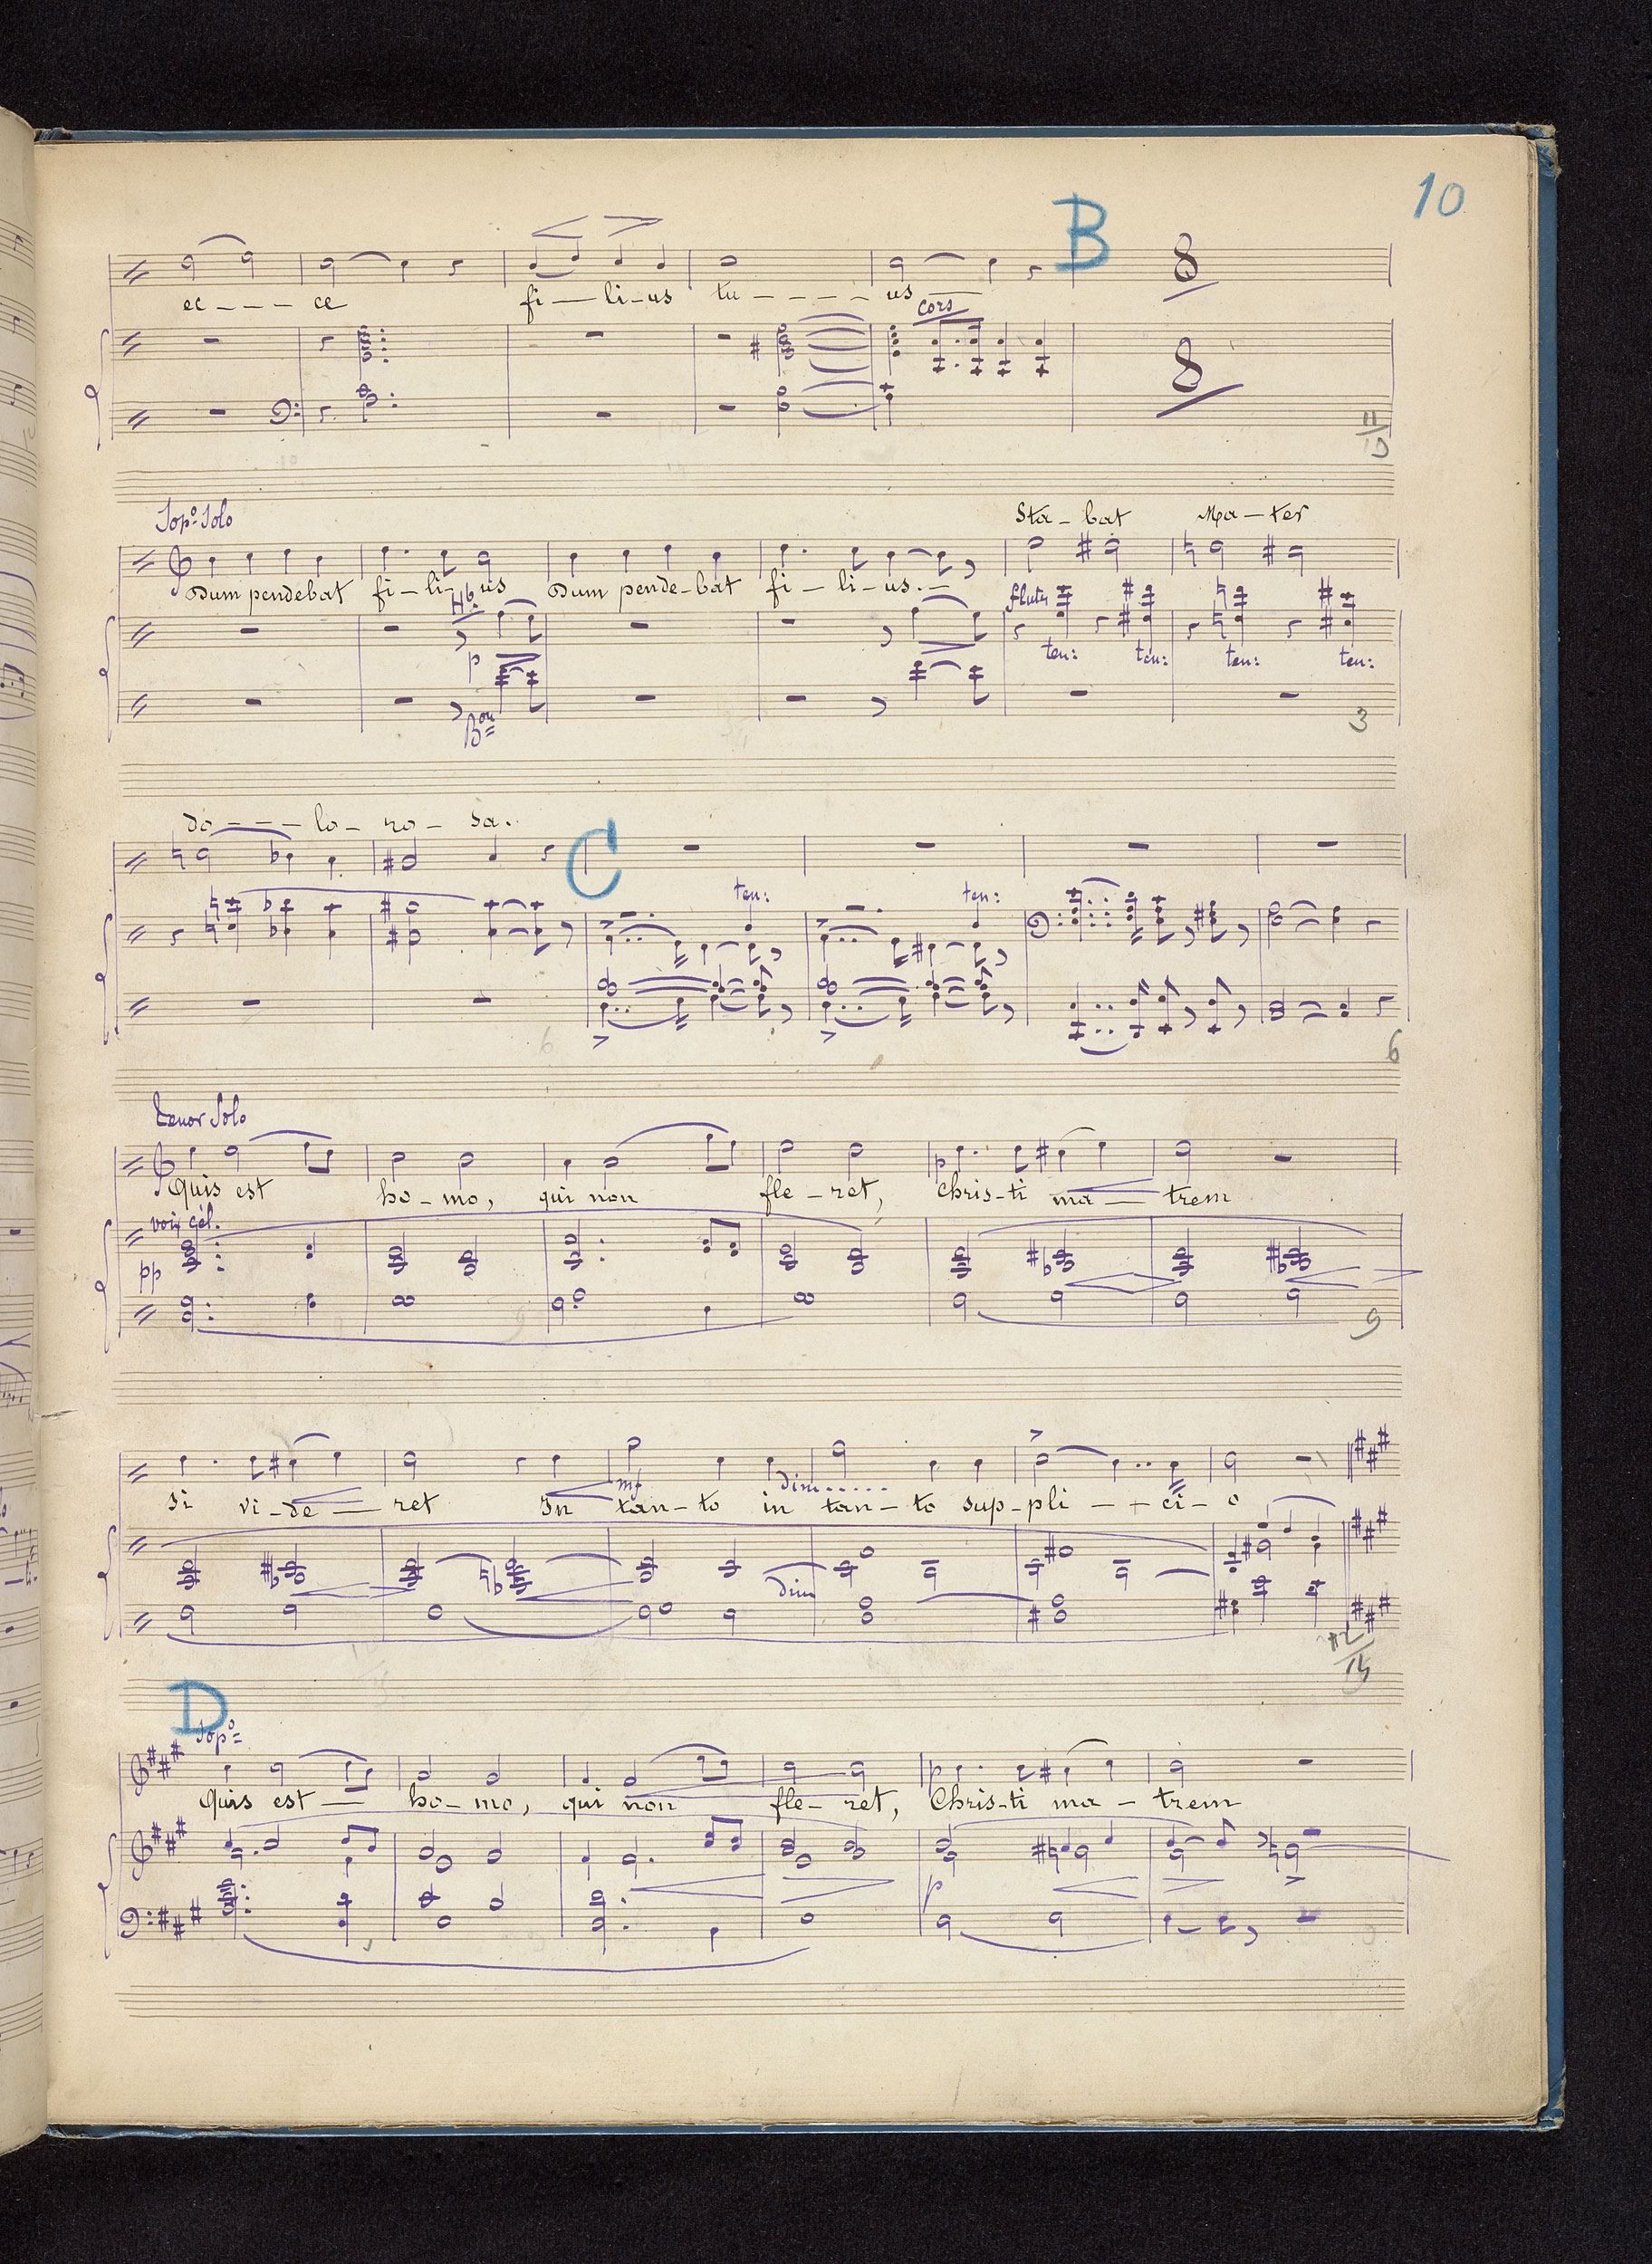 10
B
8
ec - - - ce fi - li - us tu - - - - us
cors
8
11/10
Sop.º Solo
Sta - bat Ma - ter
Dum pendebat fi - li - us Dum pende - bat fi - li - us. -
Hb. flutes
p ten: ten: ten: ten:
Bon
3
do - - - lo - ro - sa.
C
ten: ten:
6
6
Tenor Solo
p
Quis est ho - mo, qui non fle - ret, Chris - ti ma - trem
voix cél.
pp
9
mf dim......
Si vi - de - ret In tan - to in tan - to sup - pli - - ci - o
dim
D
Sop.º
p
Quis est ho - mo, qui non fle - ret, Chris - ti ma - trem
p